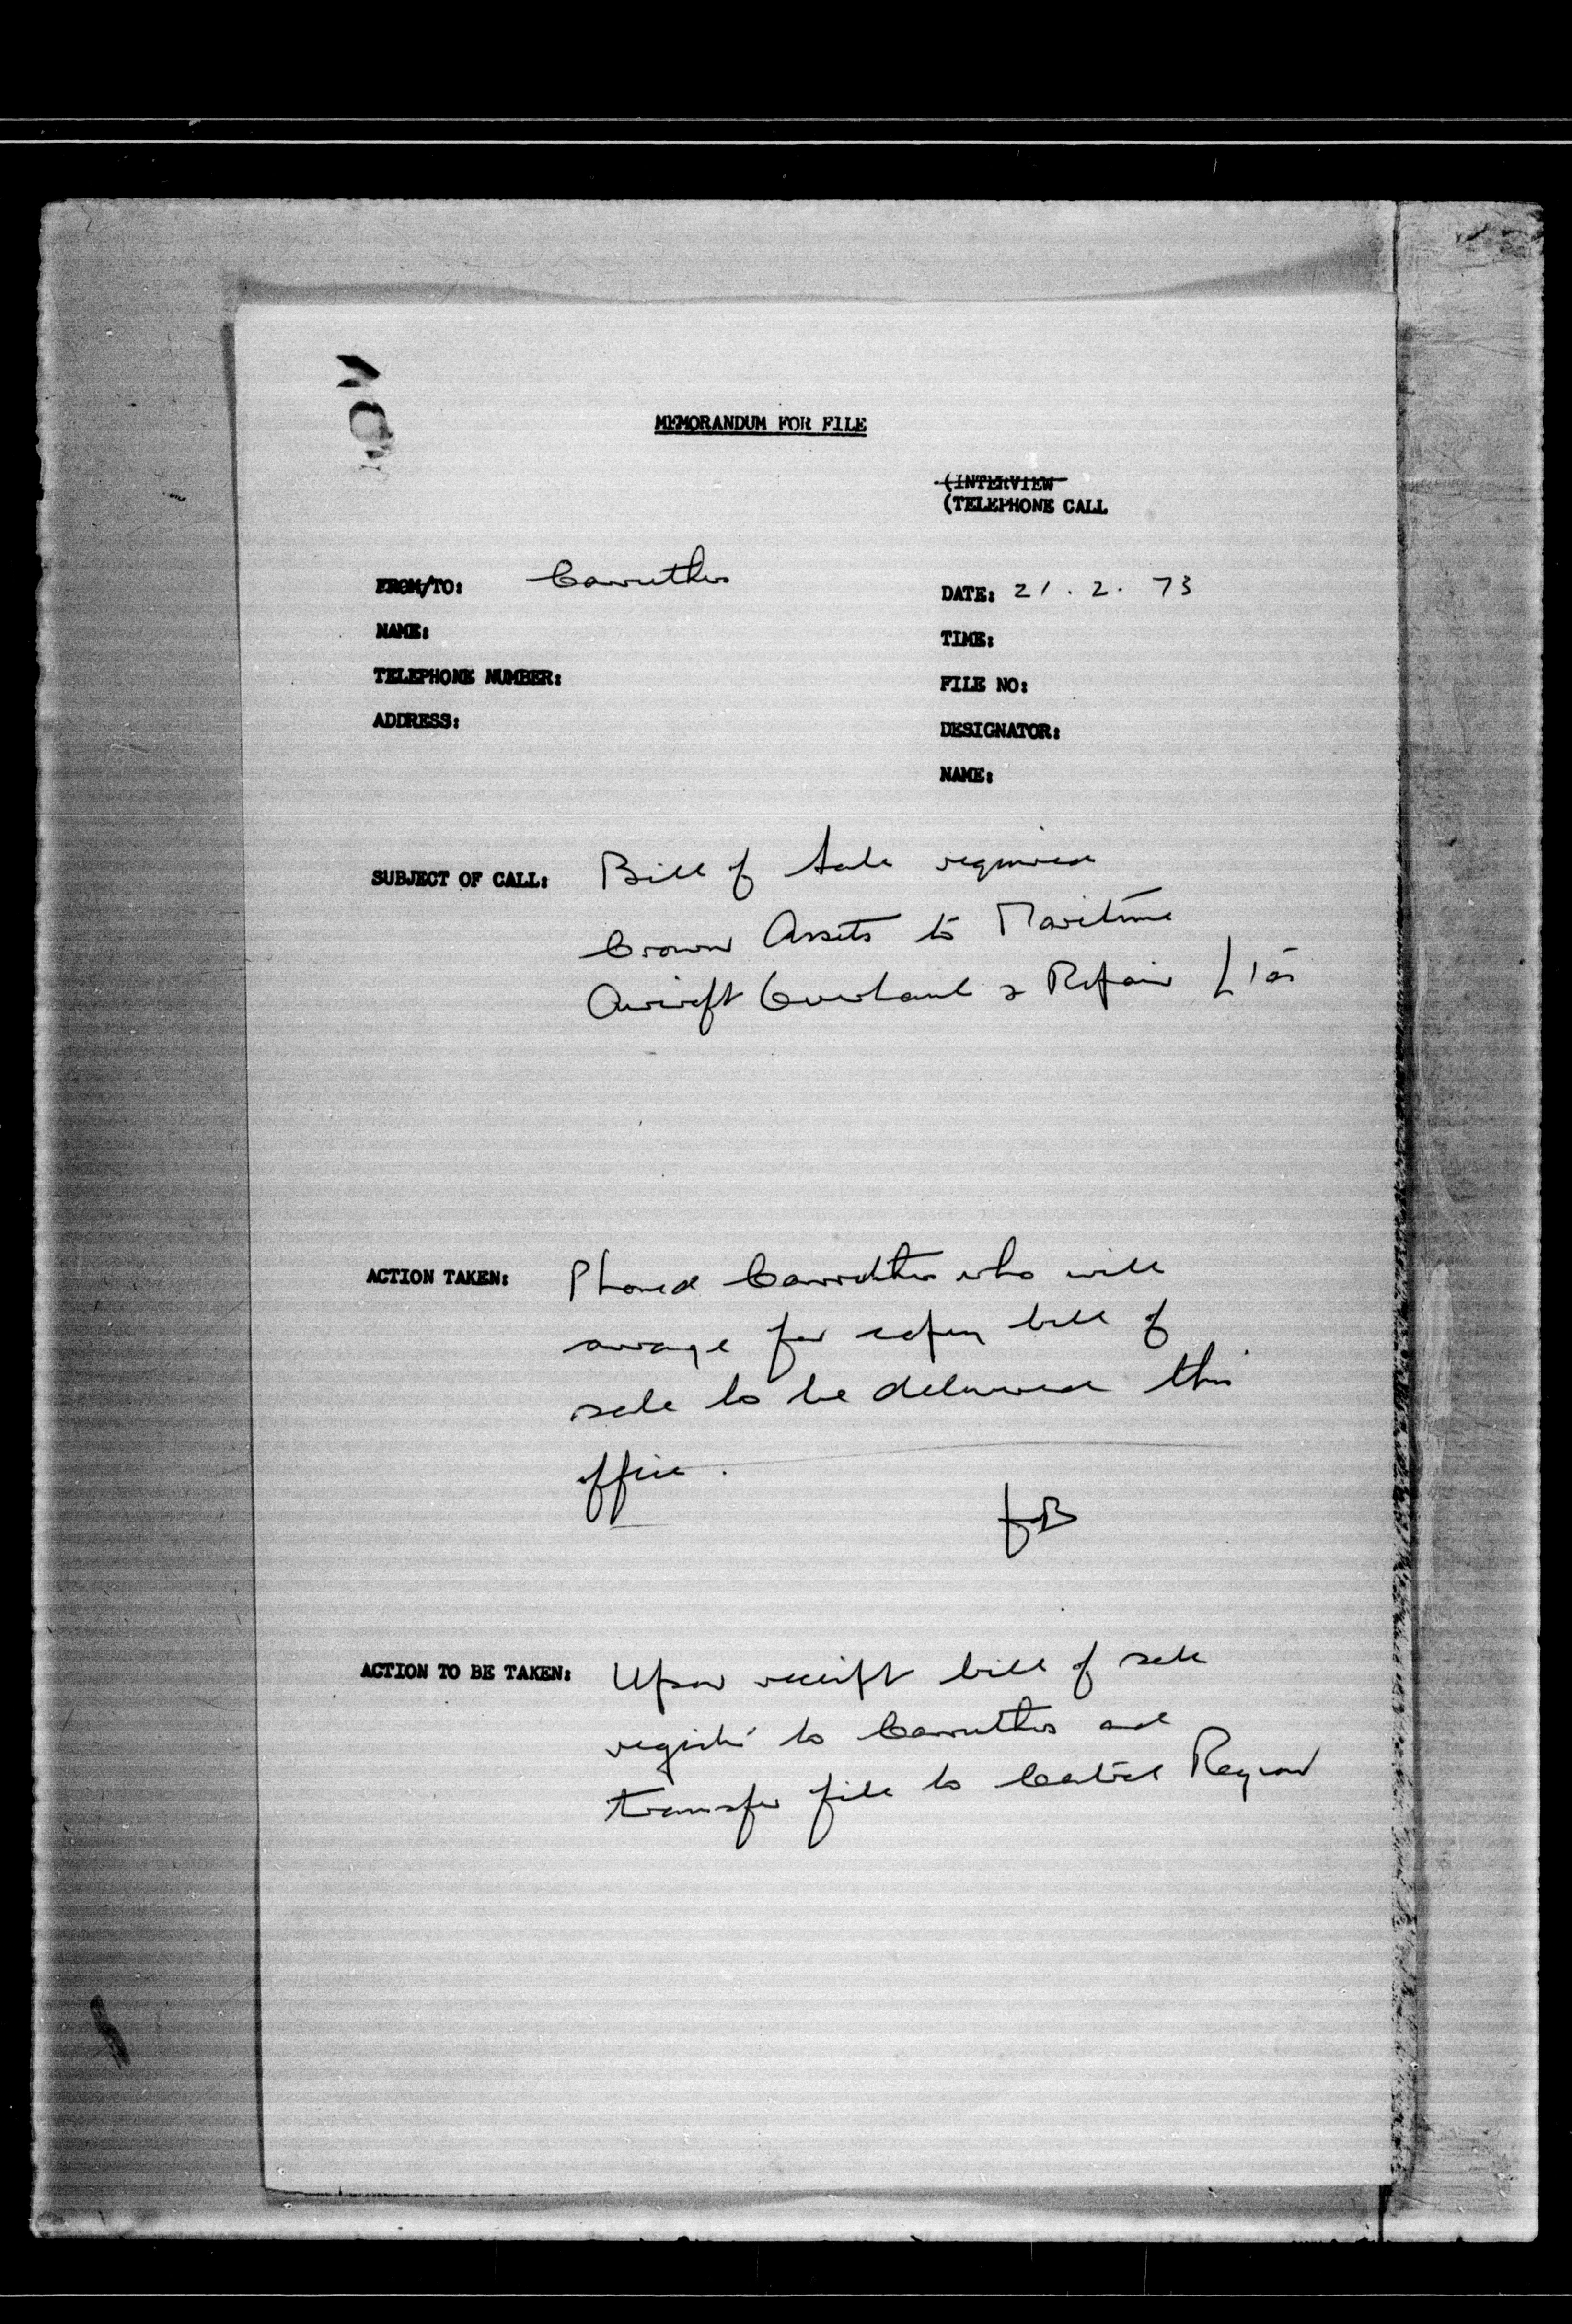 MEMORANDUM FOR FILE
(INTERVIEW
(TELEPHONE CALL
FROM/TO: Carruthers
DATE: 21. 2. 73
NAME:
TIME:
TELEPHONE NUMBER:
FILE NO:
ADDRESS:
DESIGNATOR:
NAME:
SUBJECT OF CALL: Bill of Sale required
Crown Assets to Maritime
Aircraft Overhaul & Repair Ltd
ACTION TAKEN: Phoned Carruthers who will
arrange for bill of
sale to be delivered this
office.
ACTION TO BE TAKEN: Upon receipt bill of sale
register to Carruthers and
transfer file to Central Region